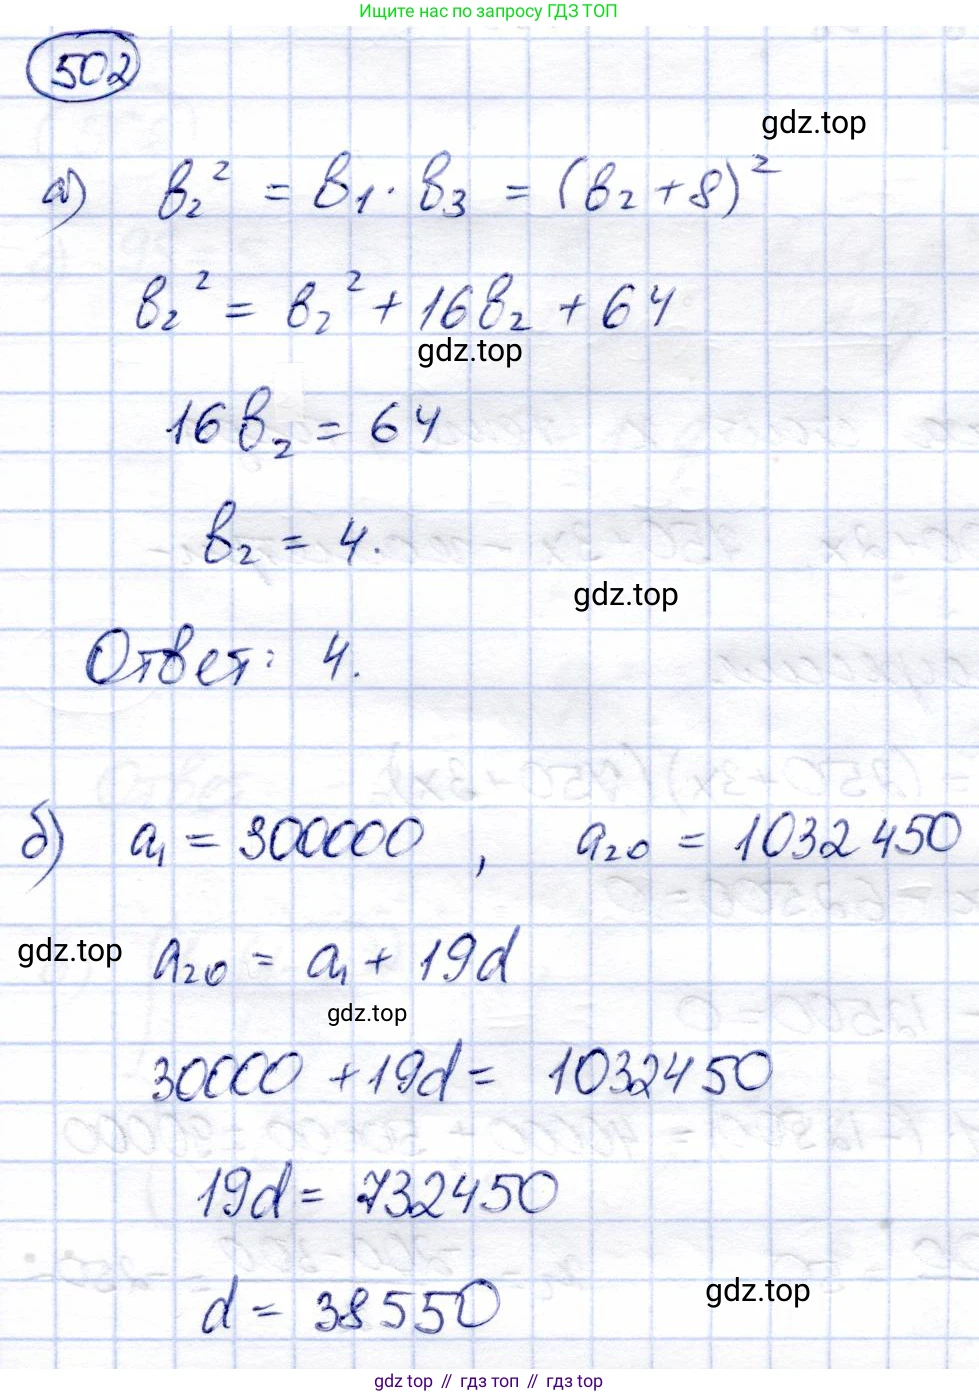 Ищите нас по запросу ГДЗ ТОП
502
gdz.top
а) b₂² = b₁ · b₃ = (b₂ + 8)²
b₂² = b₂² + 16b₂ + 64
gdz.top
16b₂ = 64
b₂ = 4.
gdz.top
Ответ: 4.
б) a₁ = 300000 , a₂₀ = 1032450
gdz.top
a₂₀ = a₁ + 19d
gdz.top
30000 + 19d = 1032450
19d = 732450
gdz.top
d = 38550
gdz.top // гдз топ // гдз top